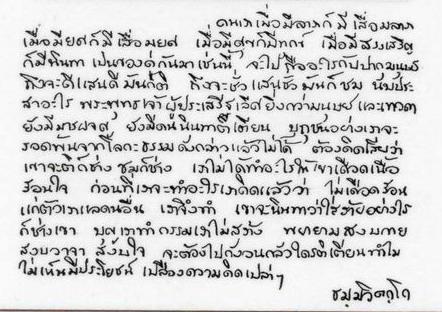 คนเราเมื่อมีลาภก็มีเสื่อมลาภ
เมื่อมียศก็มีเสื่อมยศ เมื่อมีสุขก็มีทุกข์ เมื่อมีสรรเสริญ
ก็มีนินทา เป็นของคู่กันมาเช่นนี้ จะไปถืออะไรกับปากมนุษย์
ถึงจะดีแสนดีมันก็ติ ถึงจะชั่วแสนชั่วมันก็ชม นับประ
สาอะไร พระพุทธเจ้าผู้ประเสริฐเลิศยิ่งกว่ามนุษย์และเทวดา
ยังมีมารผจญ ยังมีคนนินทาติเตียน ปุถุชนอย่างเราจะ
รอดพ้นจากโลกะธรรมดังกล่าวแล้วไม่ได้ ต้องคิดเสียว่า
เขาจะติก็ช่าง ชมก็ช่าง เราไม่ได้ทำอะไรให้เขาเดือดเนื้อ
ร้อนใจ ก่อนที่เราจะทำอะไรเราคิดแล้วว่า ไม่เดือดร้อน
แก่ตัวเราและคนอื่น เราจึงทำ เขาจะนินทาว่าใส่ร้ายอย่างไร
ก็ช่างเขา บุญเราทำกรรมเราไม่สร้าง พยายามสงบกาย
สงบวาจา สงบใจ จะต้องไปกังวนกลัวใครติเตียนทำไม
ไม่เห็นมีประโยชน์ เปลืองความคิดเปล่าๆ
ธมฺมวิตกฺโก